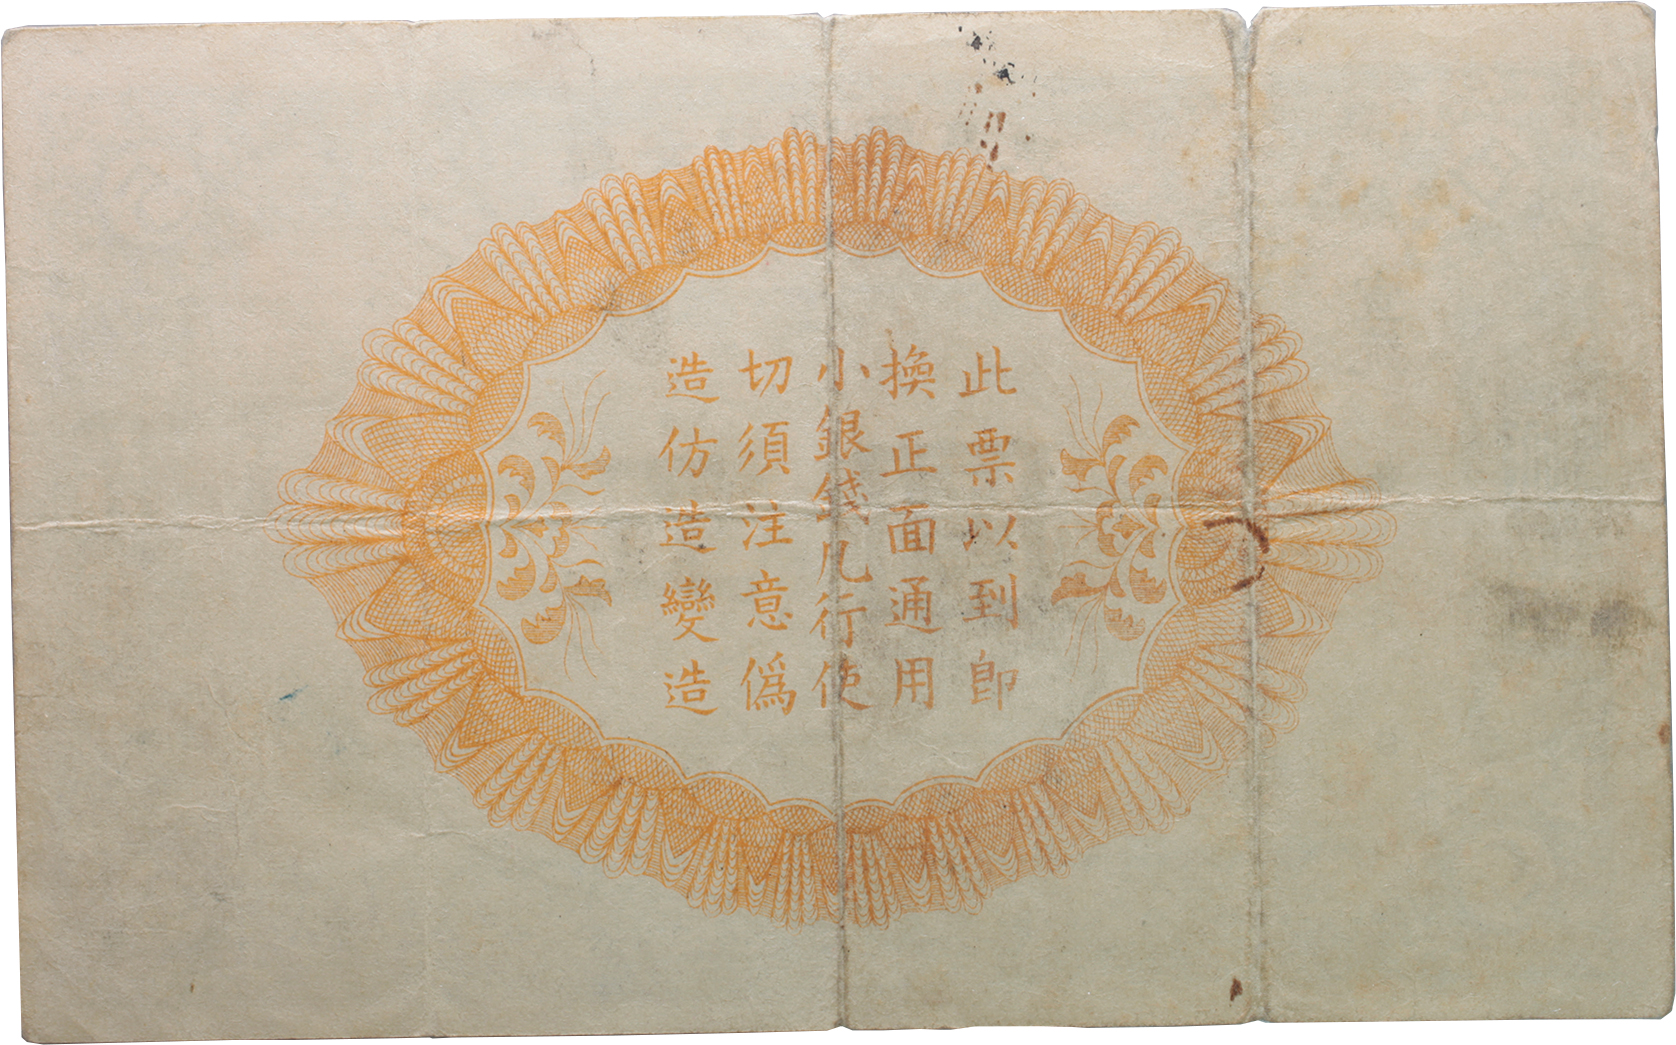 此票以到即
換正面通用
小銀錢凡行使
切須注意偽
造仿造變造